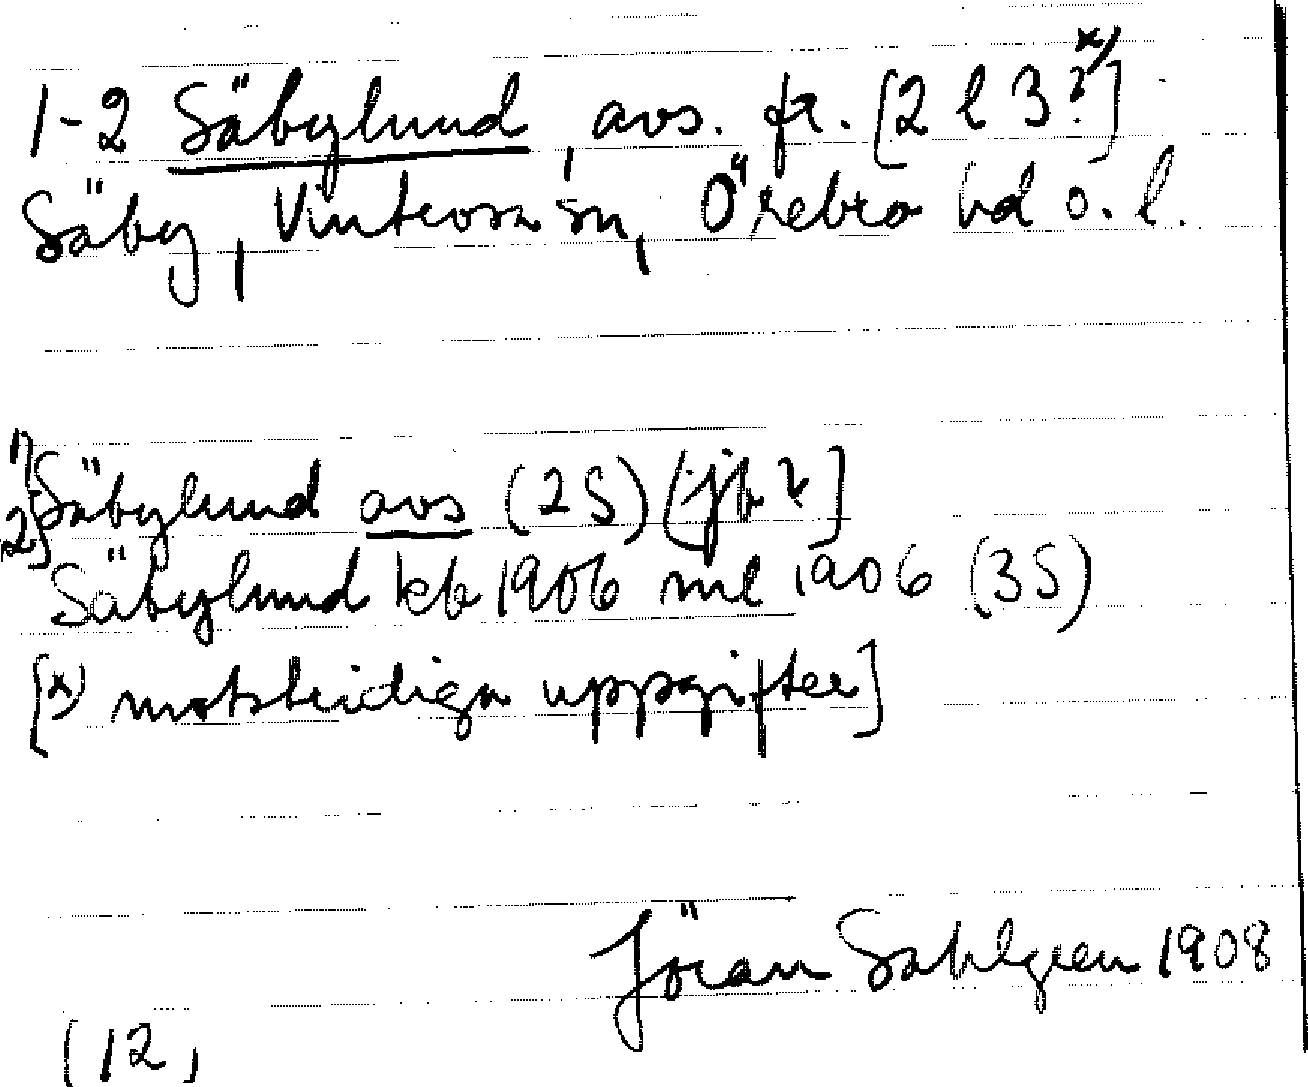 1-2 Säbylund, avs. fr. [2 l 3?x)]
Säby, Vintrosa sn, Örebro hd ö. l.
1) Säbylund avs (2S) [jb ?]
2) Säbylund kb 1906 ml 1906 (3S)
[x) motstridiga uppgifter]
Jöran Sahlgren 1908
(12,